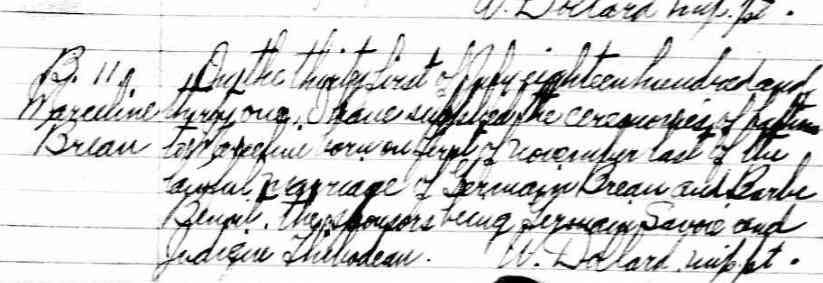 W. Dollard mip. pt.
B. 11 On the thirty first of July eighteen hundred and
Marceline thirty one, I have supplied the ceremonies of baptism
Breau to Marceline born on first of November last of the
lawful marriage of Germain Breau and Barbe
Benoit. The sponsors being Germain Savoie and
Thibodeau. W. Dollard, mip. pt.